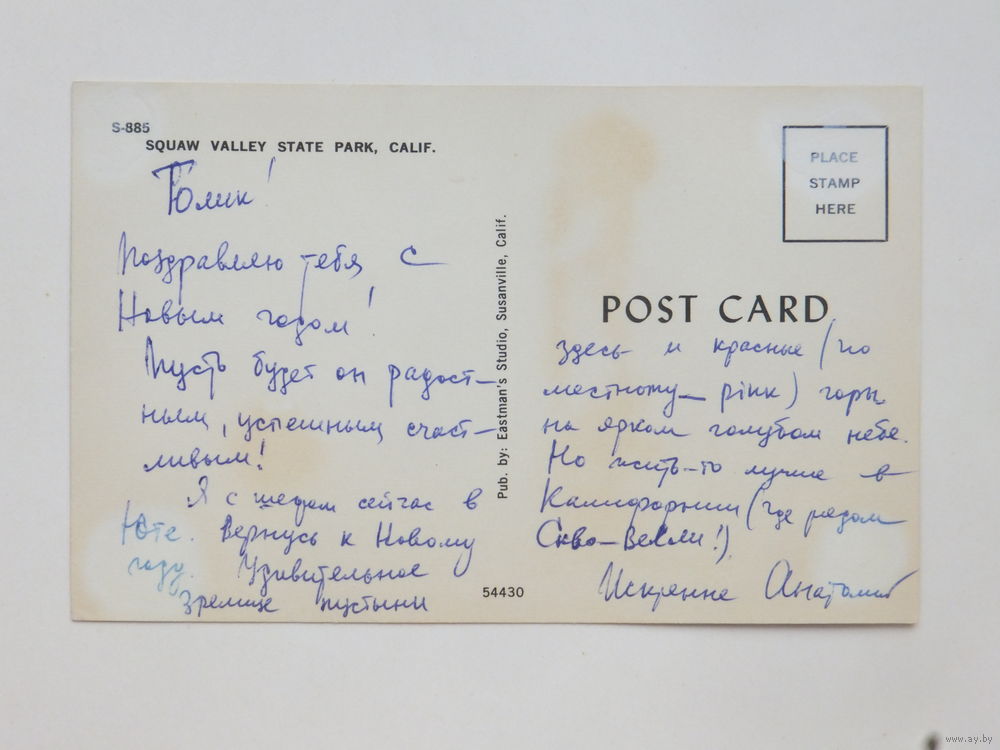 S-885
SQUAW VALLEY STATE PARK, CALIF.
Юлик!
Поздравляю тебя с
Новым годом!
Пусть будет он радост-
ным, успешным, счаст-
ливым!
Я с шефом сейчас в
Юте. Вернусь к Новому
году. Удивительное
зрелище пустыни
Pub. by: Eastman's Studio, Susanville, Calif.
54430
PLACE
STAMP
HERE
POST CARD
здесь и красные (по
местному – pink) горы
на ярком голубом небе.
Но жить-то лучше в
Калифорнии (где рядом
Скво-Велли!)
Искренне Анатолий
www.ay.by